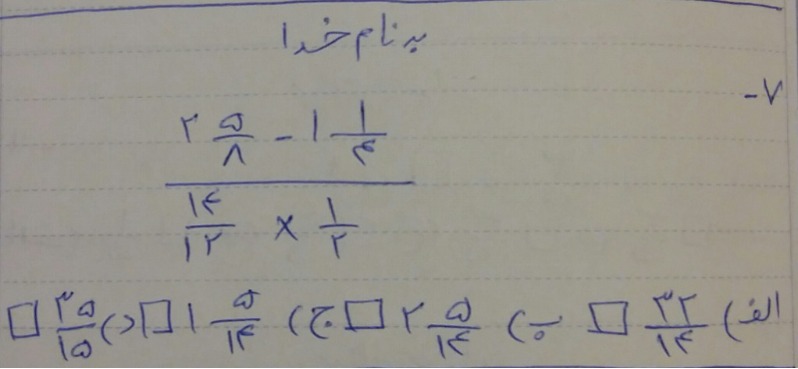 به نام خدا
۷-
۲ ۵/۸ - ۱ ۱/۴
۱۴/۱۲ × ۱/۲
الف) ۳۲/۱۴ □ ب) ۲ ۵/۱۴ □ ج) ۱ ۵/۱۴ □ د) ۳۵/۱۵ □